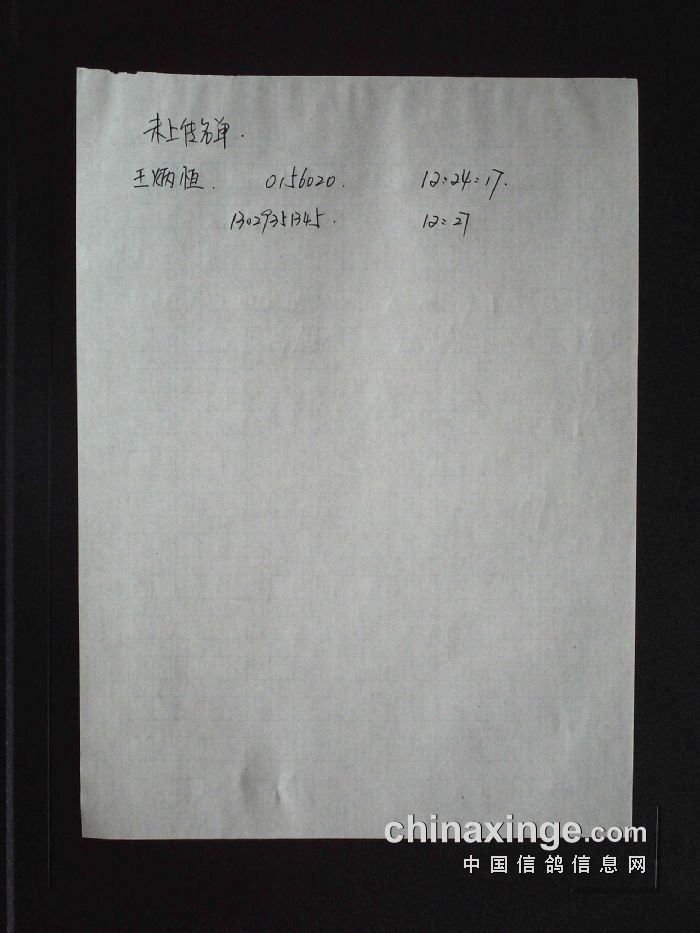 未上传名单.
王炳恒. 0156020. 12:24:17.
13029351345. 12:27
chinaxinge.com
中国信鸽信息网